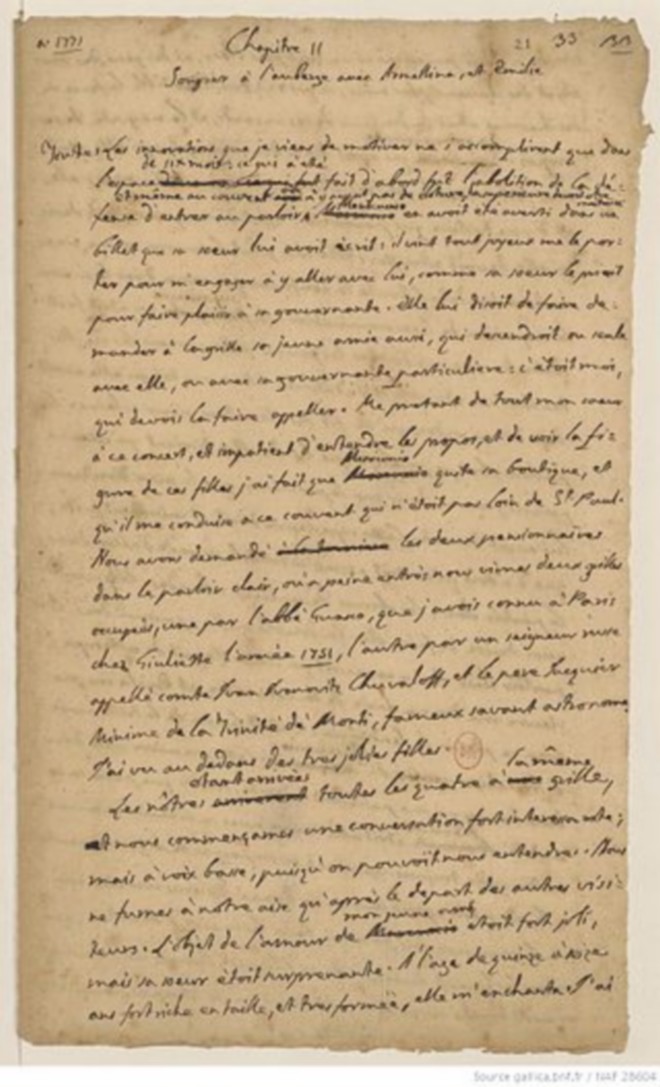 an 1771 21 33 133
Chapitre 11
Souper à l'auberge avec Armelline, et Emilie
Toutes les innovations que je viens de motiver ne s'accomplirent que dans
de six mois; ce qui a été
l'espace fut fait d'abord fut l'abolition de la dé-
et même au couvent à n'y avoit pas de cloture, la supérieure
fense d'entrer au parloir. en avoit été averti dans un
billet que sa sœur lui avoit écrit: il vint tout joyeux me le por-
ter pour m'engager à y aller avec lui, comme sa sœur le prioit
pour faire plaisir à sa gouvernante. Elle lui disoit de faire de-
mander à la grille sa jeune amie aussi, qui descendroit ou seule
avec elle, ou avec sa gouvernante particuliere: c'étoit moi,
qui devois la faire appeller. Me pretant de tout mon cœur
à ce concert, et impatient d'entendre les propos, et de voir la fi-
gure de ces filles j'ai fait que Menicuccio quite sa boutique, et
qu'il me conduise a ce couvent qui n'étoit pas loin de St Paul.
Nous avons demandé les deux pensionnaires
dans le parloir clair, où a peine entrés nous vimes deux grilles
occupées, une par l'abbé Guasco, que j'avois connu à Paris
chez Giuliette l'année 1751, l'autre par un seigneur russe
appellé comte Ivan Ivanovitz Chuvaloff, et le pere Jacquier
Minime de la Trinité dé Monti, fameux savant astronome.
J'ai vu au dedans des tres jolies filles.
étant arrivées la même
Les nôtres arriverent toutes les quatre à grille,
et nous commençames une conversation fort interessante;
mais à voix basse, puisqu'on pouvoit nous entendre. Nous
ne fumes à notre aise qu'après le depart des autres visi-
mon jeune ami
teurs. L'objet de l'amour de Menicuccio etoit fort joli,
mais sa sœur étoit surprenante. A l'age de quinze à seize
ans fort riche en taille, et tres formée, elle m'enchanta. J'ai
Source gallica.bnf.fr / NAF 28604